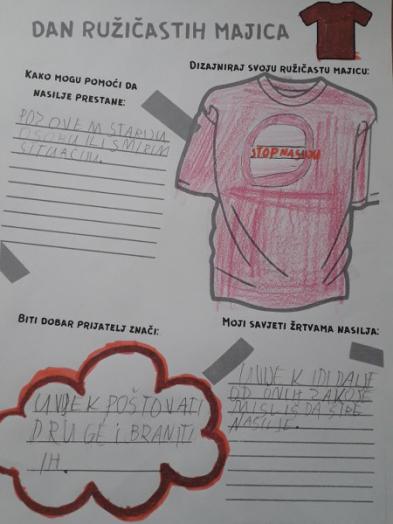 DAN RUŽIČASTIH MAJICA
KAKO MOGU POMOĆI DA
NASILJE PRESTANE:
POZOVEM STARIJU
OSOBU ILI SMIRIM
SITUACIJU.
DIZAJNIRAJ SVOJU RUŽIČASTU MAJICU:
STOP NASILJU
BITI DOBAR PRIJATELJ ZNAČI:
UVIJEK POŠTOVATI
DRUGE I BRANITI
IH.
MOJI SAVJETI ŽRTVAMA NASILJA:
UVIJEK IDI DALJE
OD ONIH ZA KOJE
MISLIŠ DA ŠIRE
NASILJE.